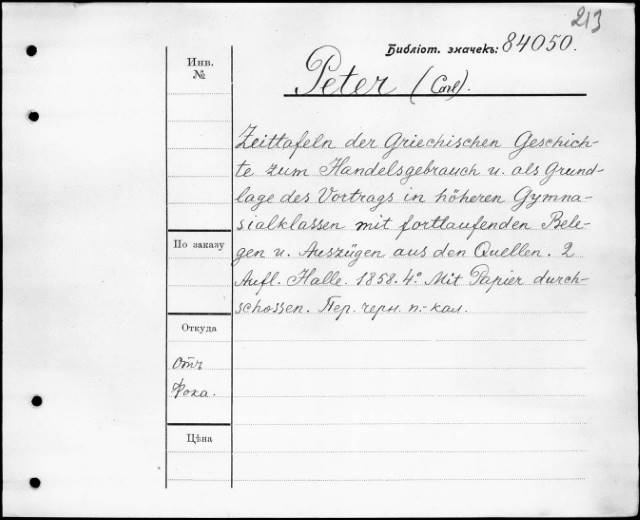 213
Библіот. значекъ: 84050.
Инв.
№
Peter (Carl).
Zeittafeln der Griechischen Geschich-
te zum Handelsgebrauch u. als Grund-
lage des Vortrags in höheren Gymna-
sialklassen mit fortlaufenden Bele-
gen u. Auszügen aus den Quellen. 2
Aufl. Halle. 1858. 4° Mit Papier durch-
schossen. Пер. черн. п.-кал.
По заказу
Откуда
Отъ
Фока.
Цѣна